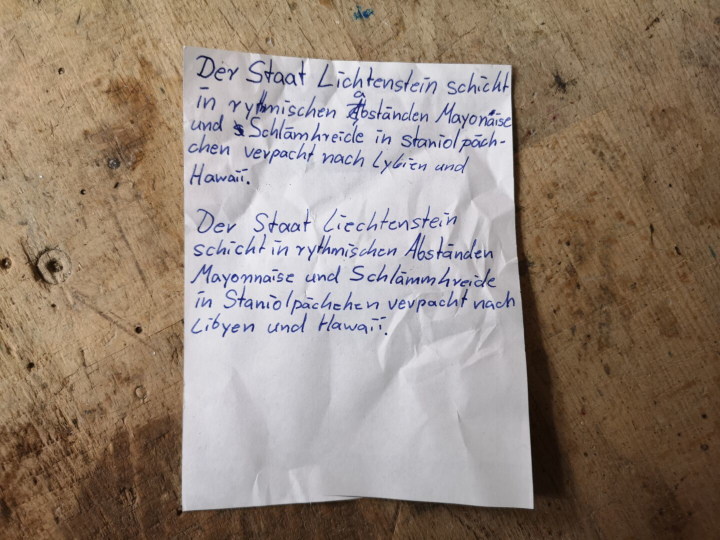 Der Staat Lichtenstein schickt
in rythmischen Abständen Mayonaise
und Schlämkreide in Staniolpäck-
chen verpackt nach Lybien und
Hawaii.
Der Staat Liechtenstein
schickt in rythmischen Abständen
Mayonnaise und Schlämmkreide
in Staniolpäckchen verpackt nach
Libyen und Hawaii.